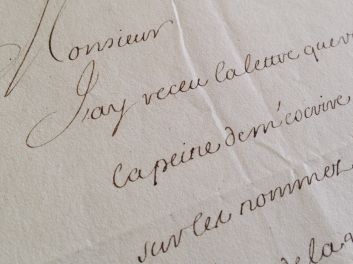 Monsieur
J'ay receu la lettre que v
la peine de m'ecrire
sur les nommez
de la